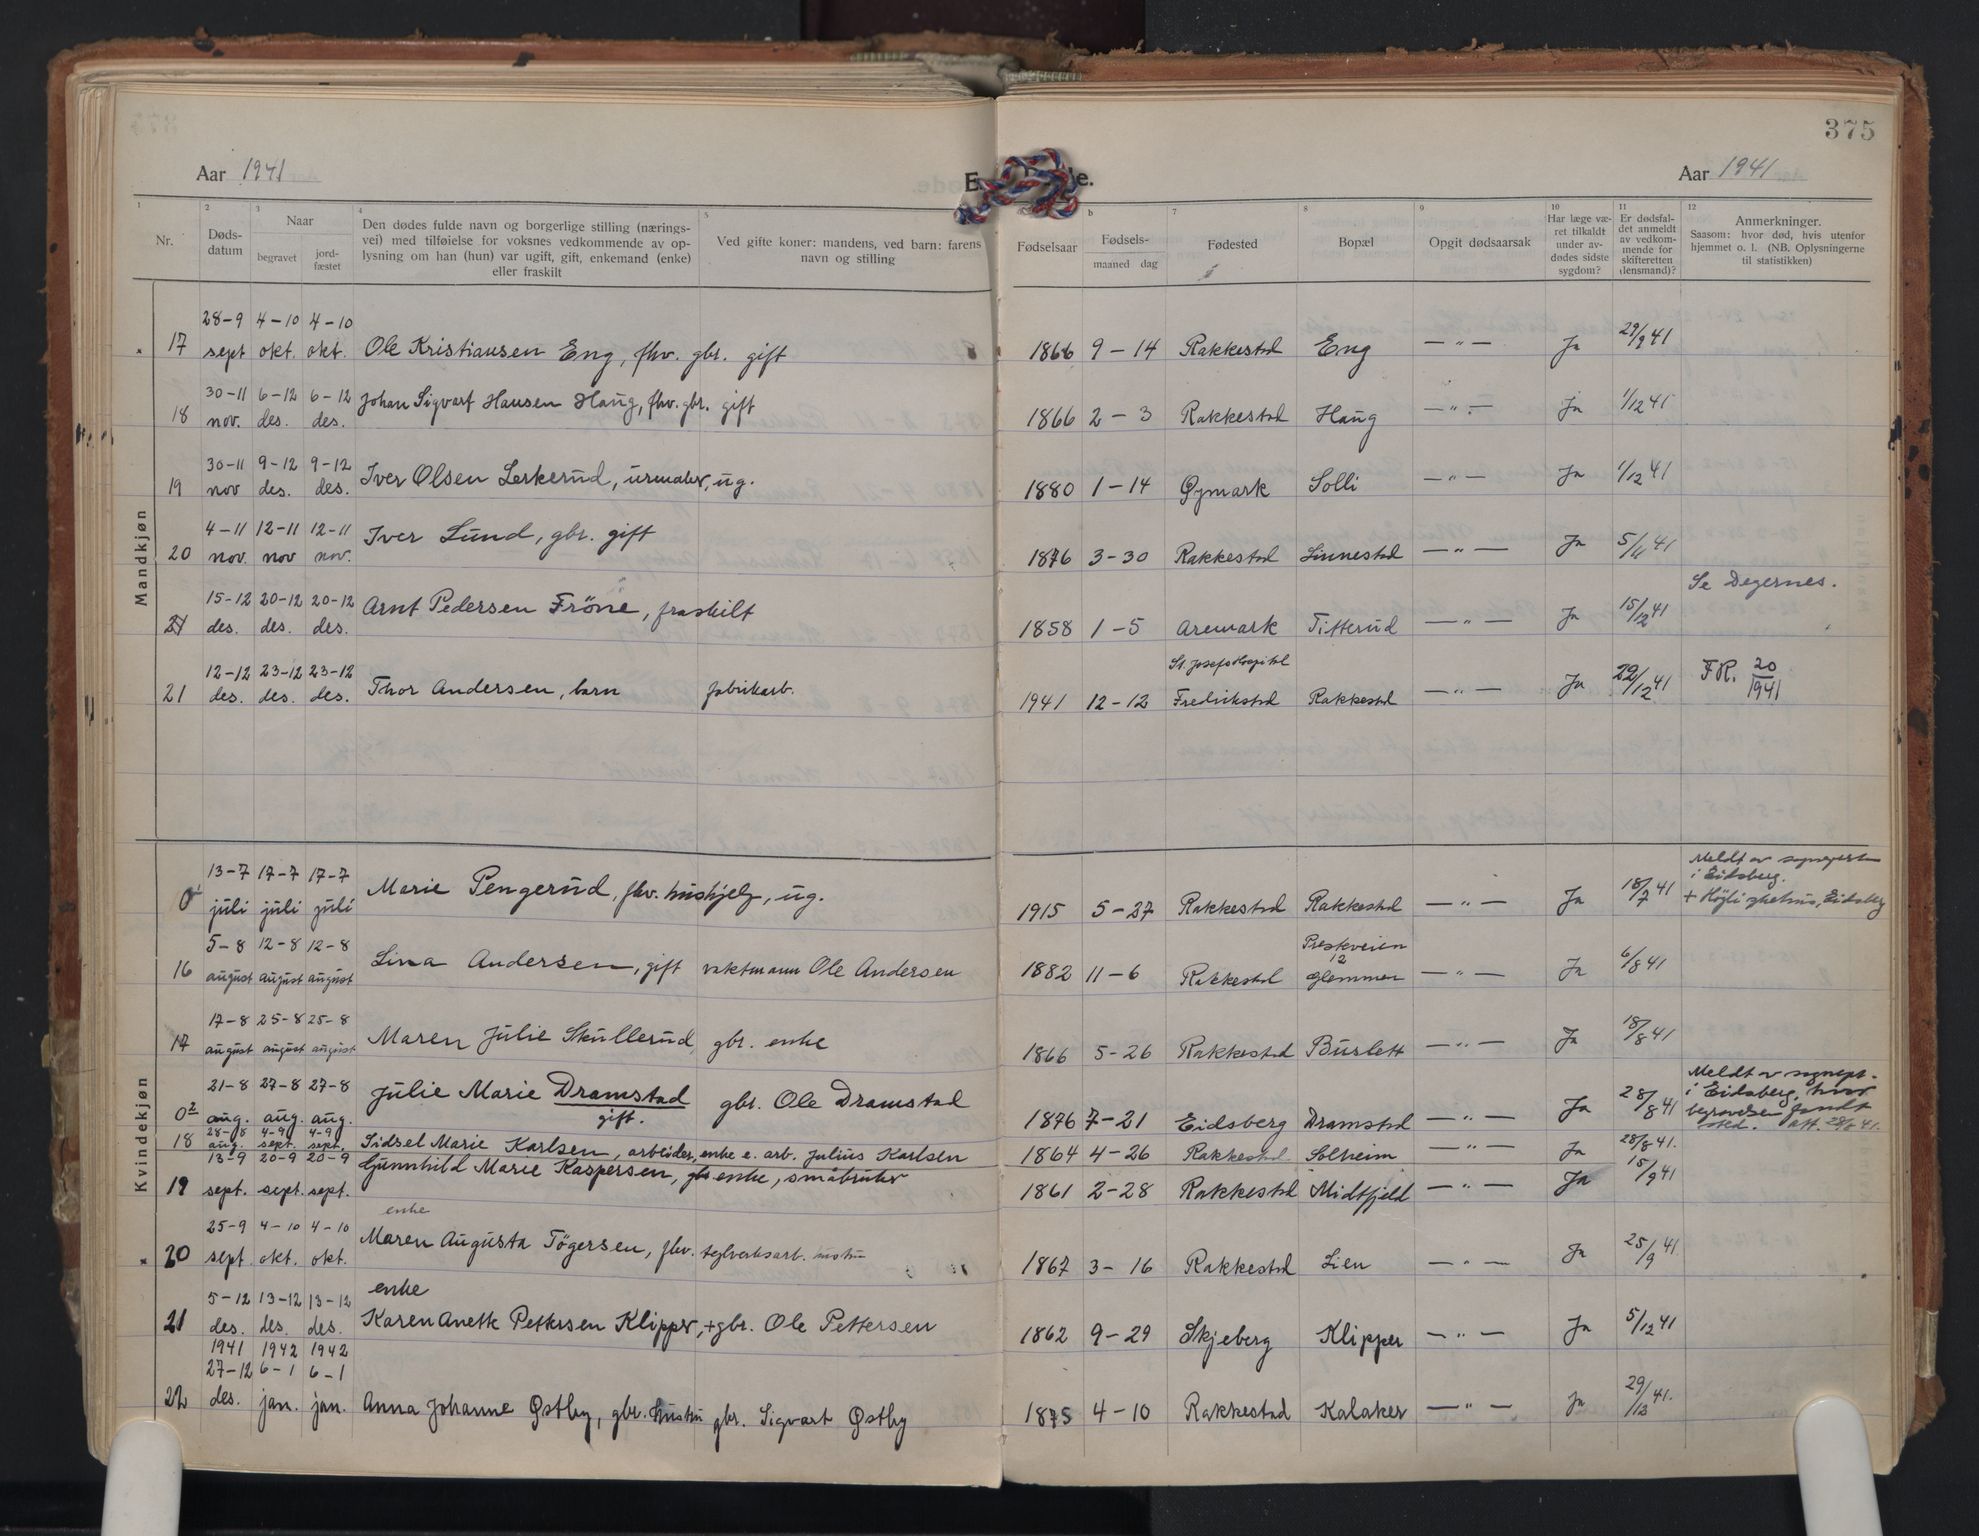 375
Aar 1941
Aar 1941
1 2 3 4 5 b 7 8 9 10 11 12
Nr.
Døds-
datum
Naar
begravet
jord-
fæstet
Den dødes fulde navn og borgerlige stilling (nærings-
vei) med tilføielse for voksnes vedkommende av op-
lysning om han (hun) var ugift, gift, enkemand (enke)
eller fraskilt
Ved gifte koner: mandens, ved barn: farens
navn og stilling
Fødselsaar
Fødsels-
maaned dag
Fødested
Bopæl
Opgit dødsaarsak
Har læge væ-
ret tilkaldt
under av-
dødes sidste
sygdom?
Er dødsfal-
det anmeldt
av vedkom-
mende for
skifteretten
(lensmand)?
Anmerkninger.
Saasom: hvor død, hvis utenfor
hjemmet o. l. (NB. Oplysningerne
til statistikken)
Mandkjøn
28-9 4-10 4-10
17 sept okt. okt. Ole Kristiansen Eng, fhv. gbr. gift 1866 9-14 Rakkestad Eng — " — Ja 29/9 41
30-11 6-12 6-12
18 nov. des. des. Johan Sigvart Hansen Haug, fhv. gbr. gift 1866 2-3 Rakkestad Haug — " — Ja 1/12 41
30-11 9-12 9-12
19 nov des. des. Iver Olsen Lerkerud, urmaker, ug. 1880 1-14 Øymark Solli — " — Ja 1/12 41
4-11 12-11 12-11
20 nov. nov nov. Iver Lund, gbr. gift 1876 3-30 Rakkestad Linnestad — " — Ja 5/11 41
Se Degernes.
15-12 20-12 20-12
21 des. des. des. Arnt Pedersen Fröne, fraskilt 1858 1-5 Aremark Titterud — " — Ja 15/12 41
12-12 23-12 23-12 St. Josefs Hospital
21 des. des. des. Thor Andersen, barn fabrikarb. 1941 12-12 Fredrikstad Rakkestad — " — Ja 22/12 41 F.R. 20/1941
Kvindekjøn
Meldt av sognepresten
i Eidsberg.
13-7 17-7 17-7
0¹ juli juli juli Marie Pengerud, fhv. hushjelp, ug. 1915 5-27 Rakkestad Rakkestad — " — Ja 18/7 41 + Högli Eidsberg
5-8 12-8 12-8 Prestveien
12
16 august august august Lina Andersen, gift vaktmann Ole Andersen 1882 11-6 Rakkestad Glemmen — " — Ja 6/8 41
17-8 25-8 25-8
17 august august august Maren Julie Skullerud, gbr. enke 1866 5-26 Rakkestad Buslett — " — Ja 18/8 41
Meldt av sognepr.
i Eidsberg, hvor
21-8 27-8 27-8
0² aug. aug. aug. Julie Marie Dramstad gbr. Ole Dramstad 1876 7-21 Eidsberg Dramstad — " — Ja 28/8 41 begravelsen fandt
gift. sted. att. 28/8 41.
28-8 4-9 4-9
18 aug. sept. sept. Sidsel Marie Karlsen, arbeider, enke e. arb. Julius Karlsen 1864 4-26 Rakkestad Solheim — " — Ja 28/8 41.
13-9 20-9 20-9
19 sept. sept. sept. Gunnhild Marie Kaspersen, enke, småbruker 1861 2-28 Rakkestad Midtfjeld — " — Ja 15/9 41
25-9 4-10 4-10 enke
20 sept. okt. okt. Maren Augusta Tögersen, fhv. teglverksarb. hustru 1867 3-16 Rakkestad Lien — " — Ja 25/9 41.
5-12 13-12 13-12 enke
21 des. des. des. Karen Anette Pettersen Klipper, + gbr. Ole Pettersen 1862 9-29 Skjeberg Klipper — " — Ja 5/12 41
1941 1942 1942
27-12 6-1 6-1
22 des. jan. jan. Anna Johanne Østby, gbr. hustru gbr. Sigvart Østby 1875 4-10 Rakkestad Kalaker — " — Ja 29/12 41.